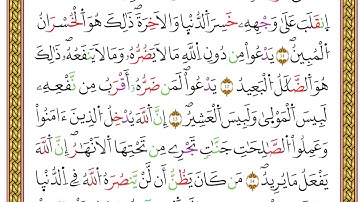 ٱنقَلَبَ عَلَىٰ وَجْهِهِۦ خَسِرَ ٱلدُّنْيَا وَٱلْأَخِرَةَ ذَٰلِكَ هُوَ ٱلْخُسْرَانُ
ٱلْمُبِينُ ۝١١ يَدْعُوا۟ مِن دُونِ ٱللَّهِ مَا لَا يَضُرُّهُۥ وَمَا لَا يَنفَعُهُۥ ذَٰلِكَ
هُوَ ٱلضَّلَٰلُ ٱلْبَعِيدُ ۝١٢ يَدْعُوا۟ لَمَن ضَرُّهُۥٓ أَقْرَبُ مِن نَّفْعِهِۦ
لَبِيسَ ٱلْمَوْلَىٰ وَلَبِيسَ ٱلْعَشِيرُ ۝١٣ إِنَّ ٱللَّهَ يُدْخِلُ ٱلَّذِينَ ءَامَنُوا۟
وَعَمِلُوا۟ ٱلصَّٰلِحَٰتِ جَنَّٰتٍ تَجْرِي مِن تَحْتِهَا ٱلْأَنْهَٰرُ إِنَّ ٱللَّهَ
يَفْعَلُ مَا يُرِيدُ ۝١٤ مَن كَانَ يَظُنُّ أَن لَّن يَنصُرَهُ ٱللَّهُ فِي ٱلدُّنْيَا